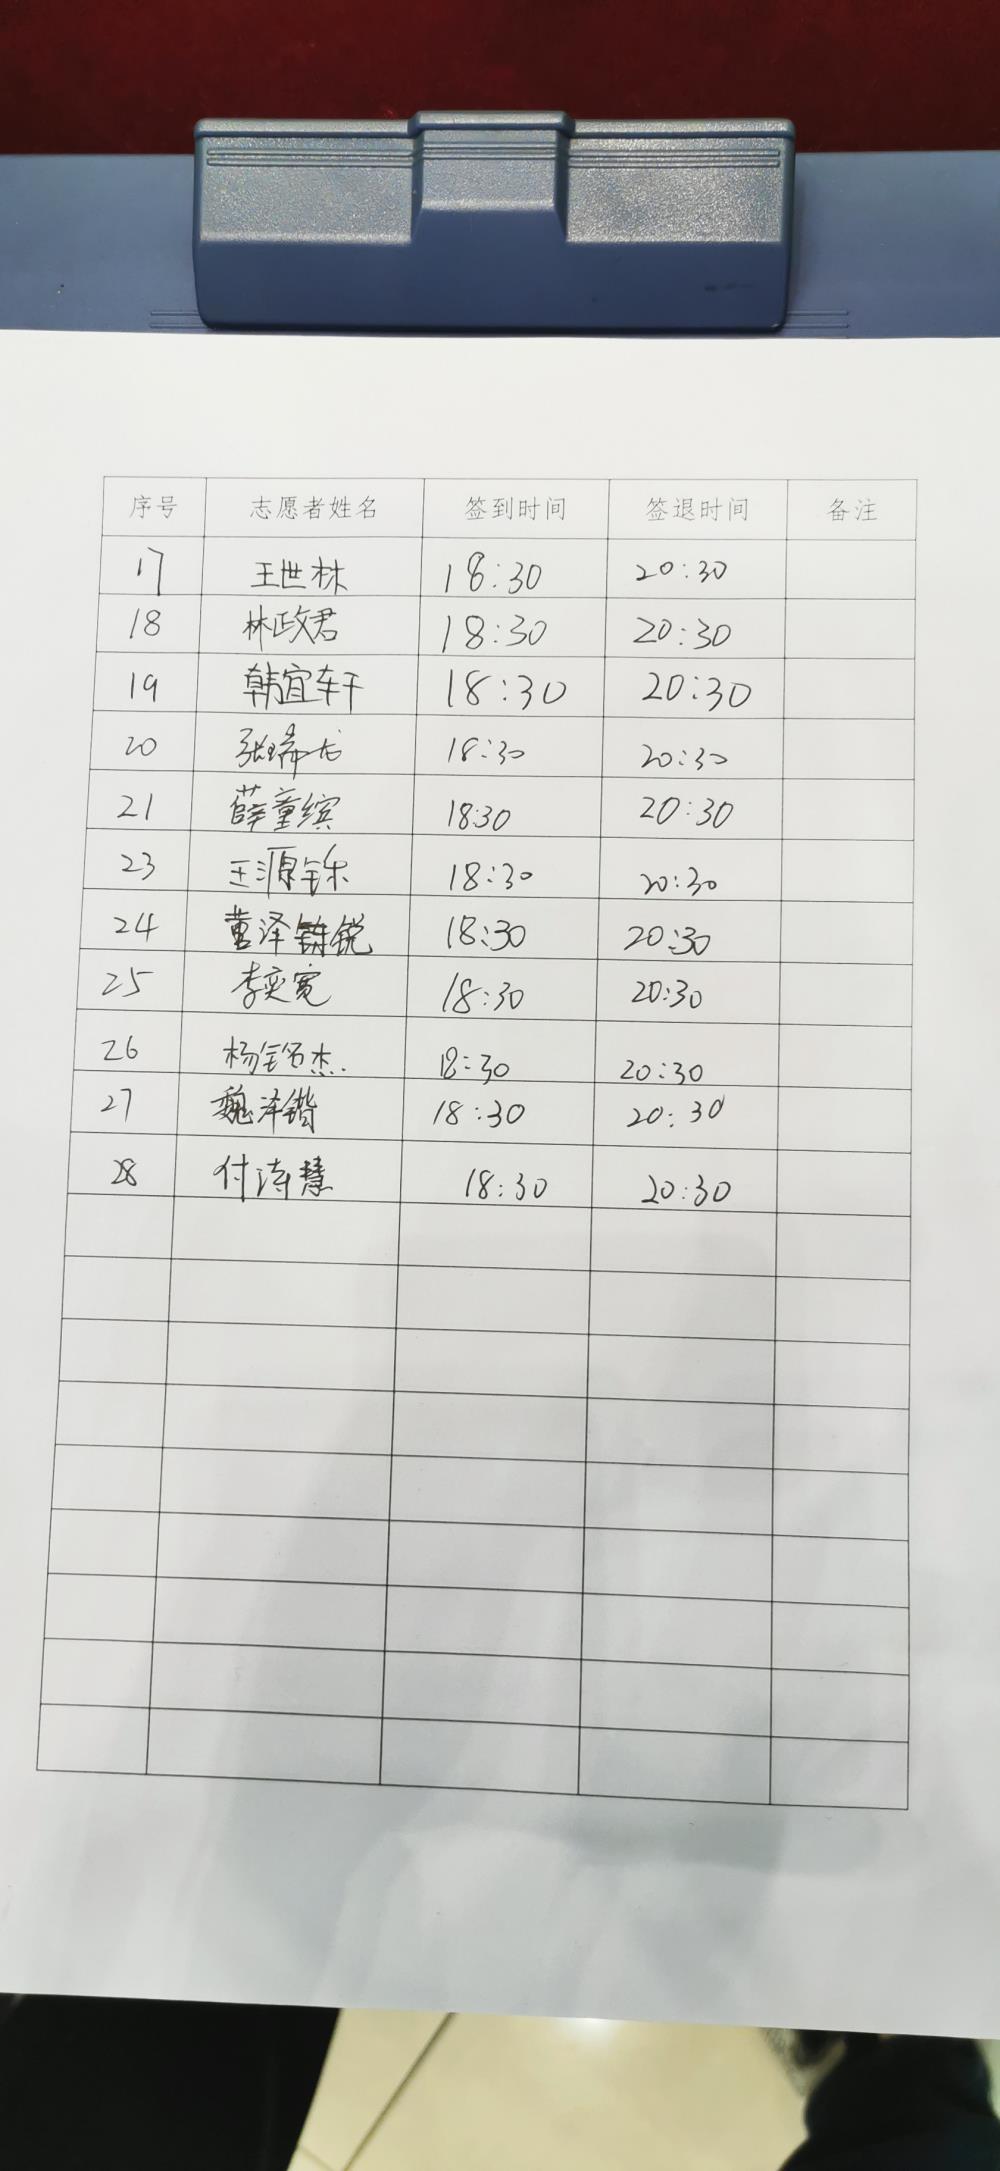 序号 志愿者姓名 签到时间 签退时间 备注
17 王世林 18:30 20:30
18 林政君 18:30 20:30
19 韩宜轩 18:30 20:30
20 张瑞龙 18:30 20:30
21 薛童缤 18:30 20:30
23 王源铄 18:30 20:30
24 董泽锐 18:30 20:30
25 李奕宽 18:30 20:30
26 杨铭杰 18:30 20:30
27 魏泽锴 18:30 20:30
28 付涛慧 18:30 20:30